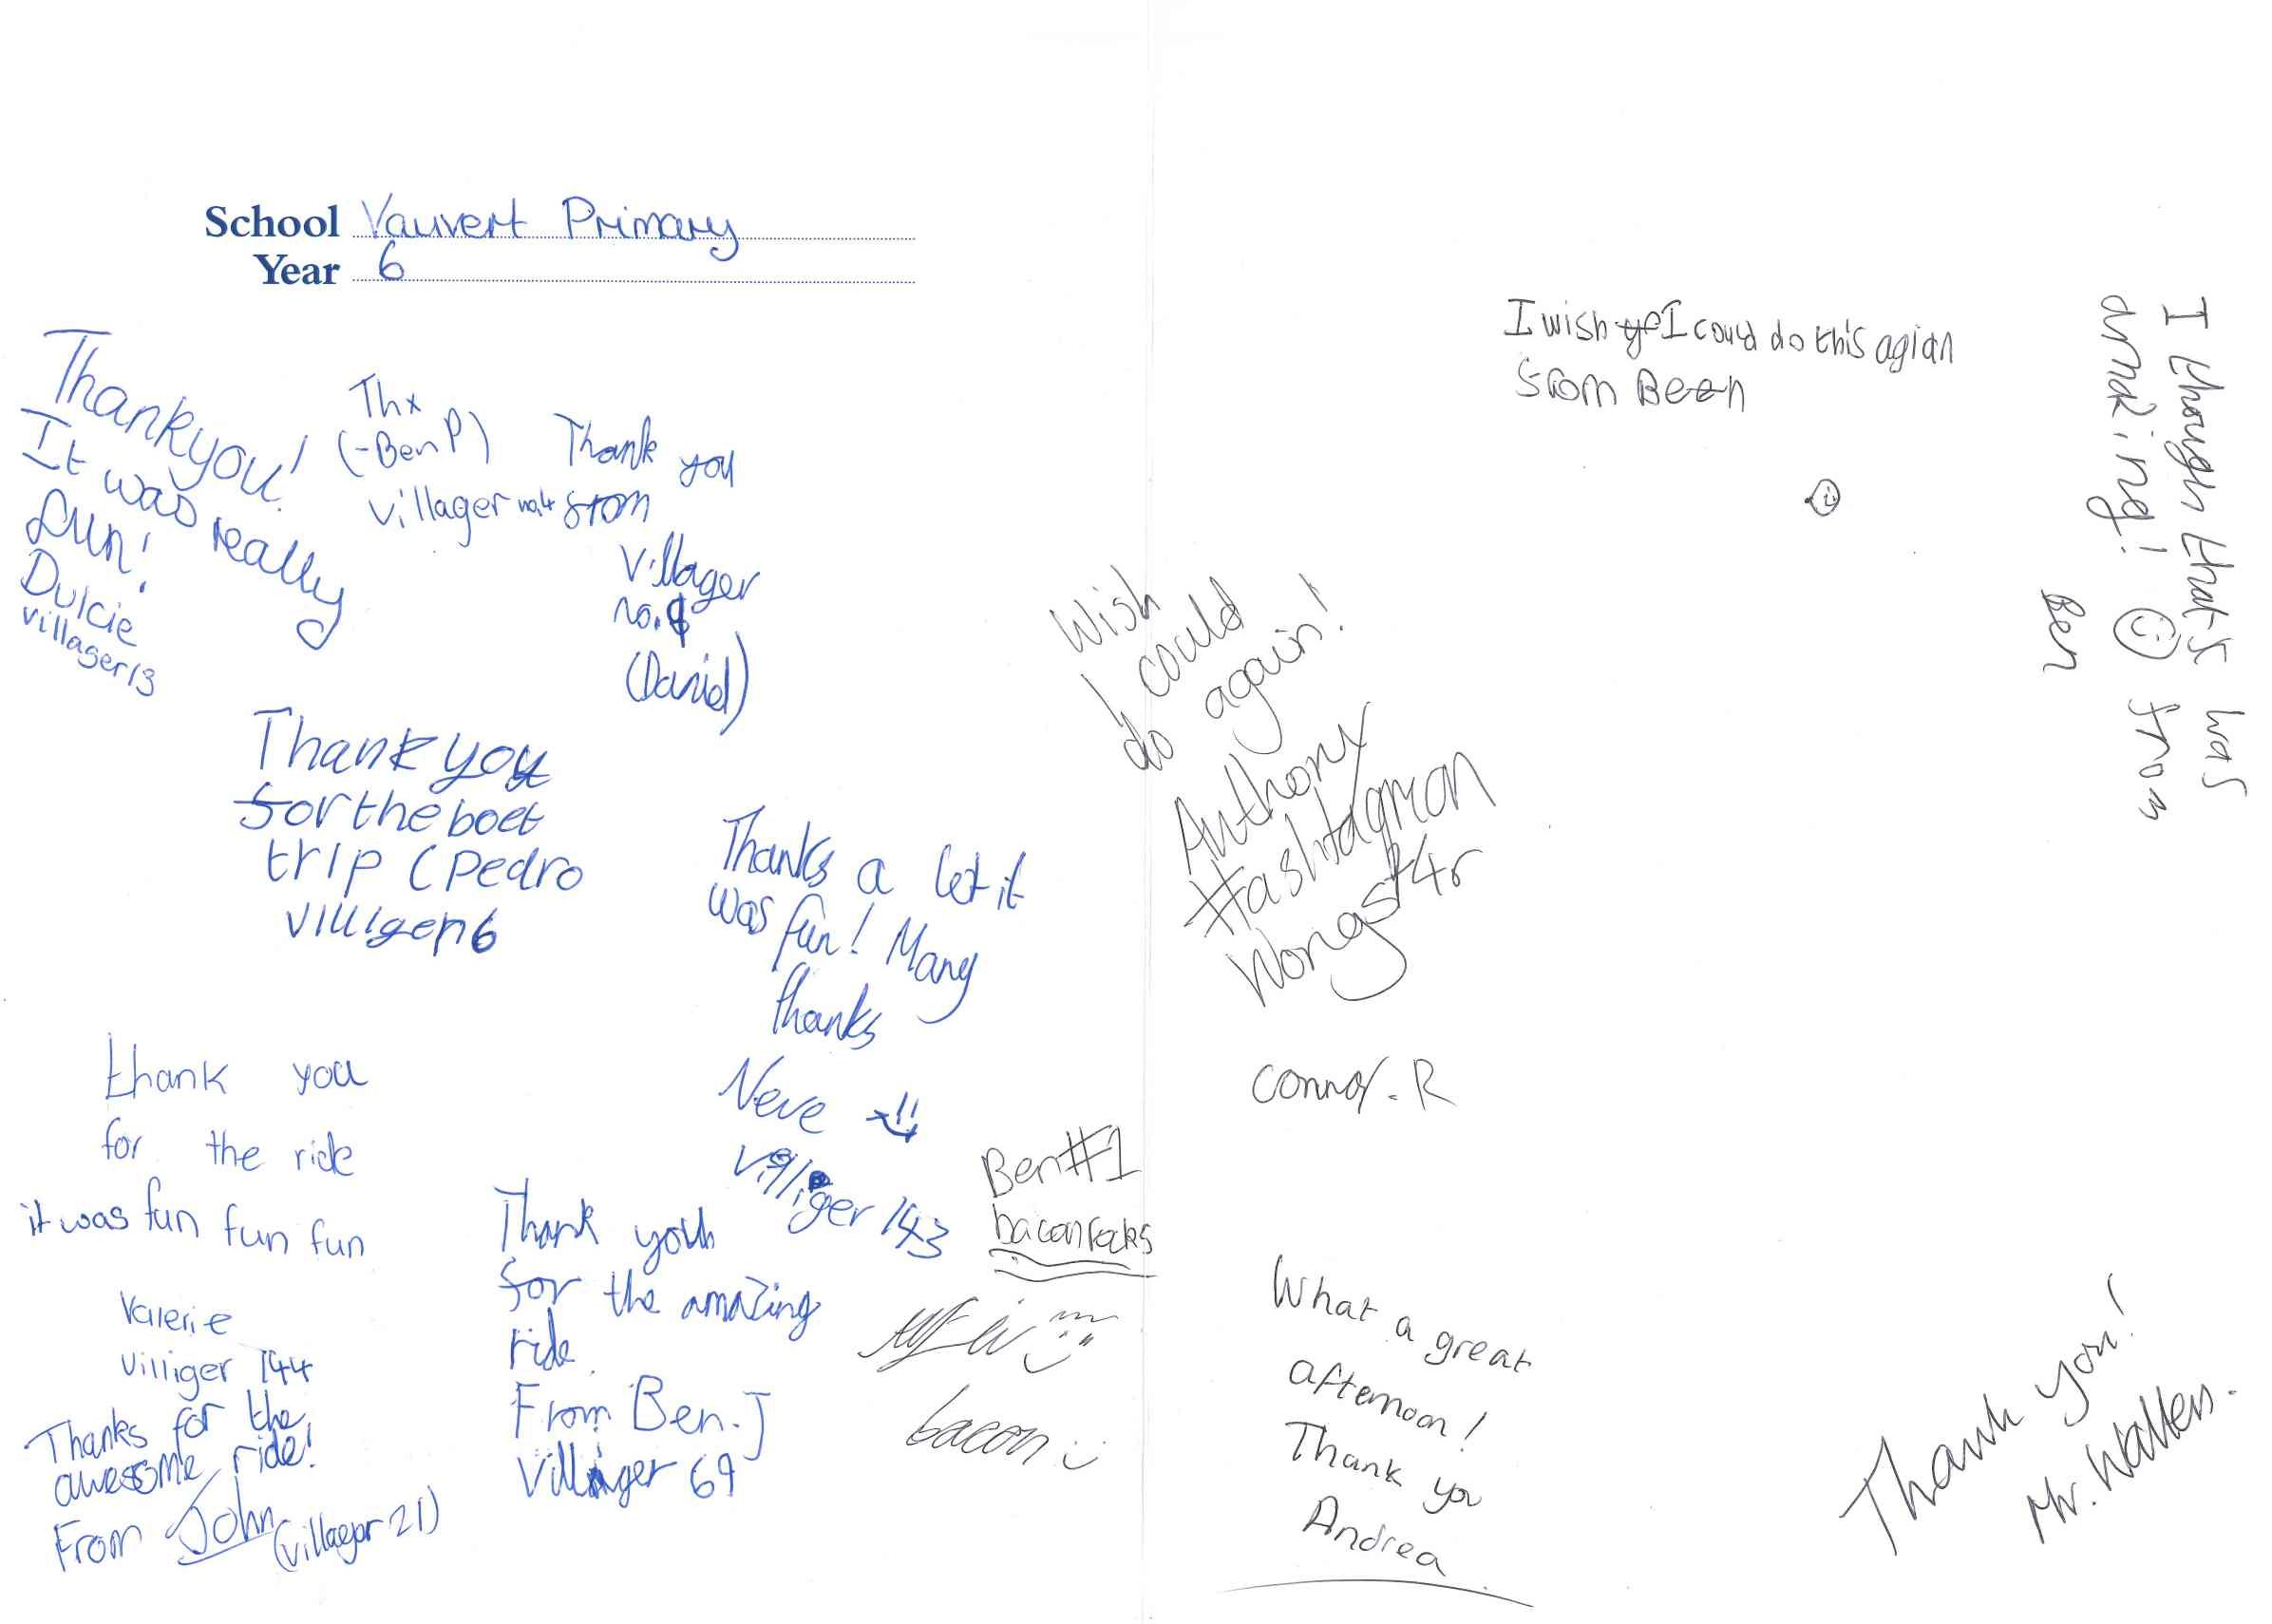 School Vauvert Primary
Year 6
Thankyou!
It was really
fun!
Dulcie
villager 13
Thx
(-Ben P)
villager no.4
Thank you
from
Villager
no.
(Daniel)
Thank you
for the boet
trip (Pedro
villigen 6
Thanks a lot it
was fun! Many
thanks
Neve
villiger 143
thank you
for the ride
it was fun fun fun
Valerie
villiger 144
Thanks for the
awesome ride!
From John
(villager 21)
Thank you
for the amazing
ride.
From Ben.J
Villiger 69
Ben#1
bacon rocks
bacon
Wish
I could
do again!
Anthony
#ashtdgmon
Wongst4r
Connor.R
What a great
afternoon!
Thank you
Andrea
I wish I could do this agian
from Ben
I thourgh that's was
amaking! from
Ben
Thank you!
Mr. Watters.